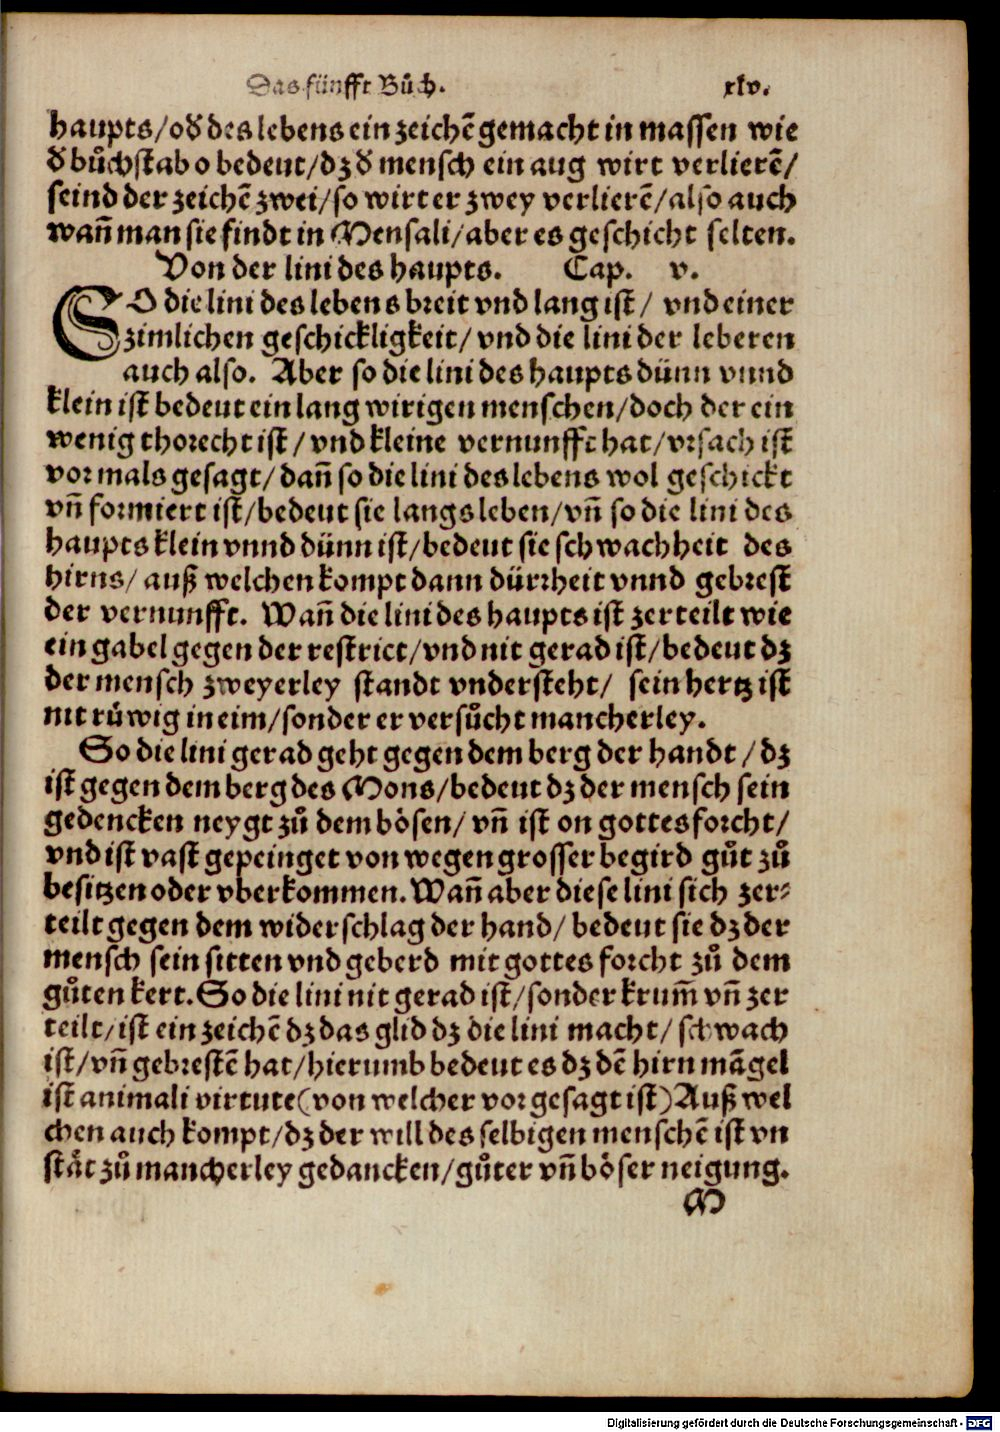 Das fünfft Bůch. xlv.
haupts/od̕ des lebens ein zeichē gemacht in massen wie
d̕ bůchstab o bedeut/dz d̕ mensch ein aug wirt verlierē/
seind der zeichē zwei/so wirt er zwey verlierē/also auch
wañ man sie findt in Mensali/aber es geschicht selten.
Von der lini des haupts. Cap. v.
SO die lini des lebens breit vnd lang ist/ vnd einer
zimlichen geschickligkeit/ vnd die lini der leberen
auch also. Aber so die lini des haupts dünn vnnd
klein ist bedeut ein lang wirigen menschen/doch der ein
wenig thorecht ist/vnd kleine vernunfft hat/vrsach ist
vormals gesagt/dañ so die lini des lebens wol geschickt
vñ formiert ist/bedeut sie langs leben/vñ so die lini des
haupts klein vnnd dünn ist/bedeut sie schwachheit des
hirns/ auß welchen kompt dann dürrheit vnnd gebrest
der vernunfft. Wañ die lini des haupts ist zerteilt wie
ein gabel gegen der restrict/vnd nit gerad ist/bedeut dz
der mensch zweyerley standt vndersteht/ sein hertz ist
nit růwig in eim/sonder er versůcht mancherley.
So die lini gerad geht gegen dem berg der handt/dz
ist gegen dem berg des Mons/bedeut dz der mensch sein
gedencken neygt zů dem bösen/ vñ ist on gottesforcht/
vnd ist vast gepeinget von wegen grosser begird gůt zů
besitzen oder vberkommen. Wañ aber diese lini sich zer⸗
teilt gegen dem widerschlag der hand/ bedeut sie dz der
mensch sein sitten vnd geberd mit gottes forcht zů dem
gůten kert. So die lini nit gerad ist/sonder krum̄ vñ zer
teilt/ist ein zeichē dz das glid dz die lini macht/ schwach
ist/vñ gebrestē hat/hierumb bedeut es dz dē hirn māgel
ist animali virtute(von welcher vor gesagt ist)Auß wel
chen auch kompt/dz der will des selbigen menschē ist vn
stät zů mancherley gedancken/gůter vñ böser neigung.
M
Digitalisierung gefördert durch die Deutsche Forschungsgemeinschaft - DFG